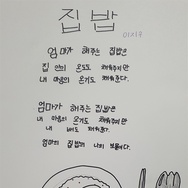 집밥
엄마가 해주는 집밥은
집 안의 온도도 채워주지만
내 마음의 온기도 채워준다.
엄마가 해주는 집밥은
내 마음의 온기도 채워주지만
내 배도 채워준다.
엄마의 집밥에 나의 보물이다.